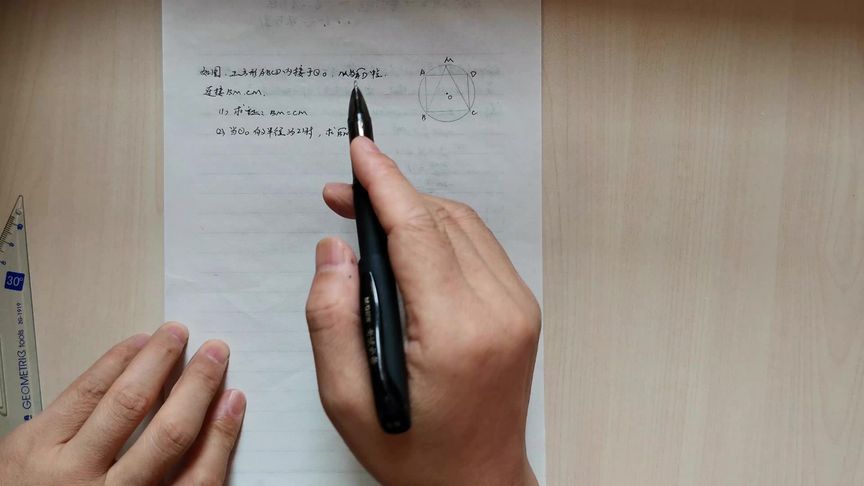 如图,正方形ABCD内接于⊙O,M为 中点,
连接BM,CM.
(1) 求证:BM=CM
(2) 当⊙O的半径为2时,求
M
A
D
O
B
C
30°
GEOMETRIC tools